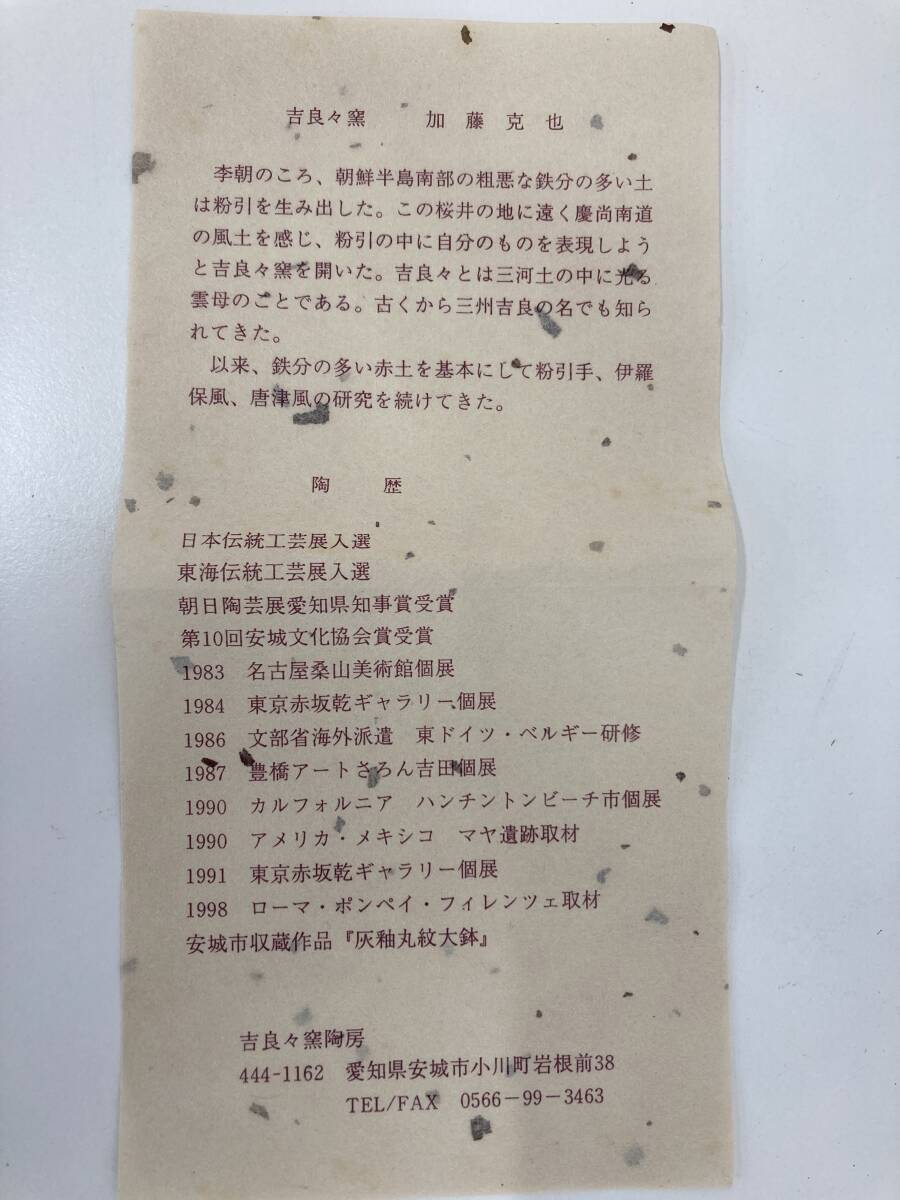 吉良々窯　加藤克也
李朝のころ、朝鮮半島南部の粗悪な鉄分の多い土
は粉引を生み出した。この桜井の地に遠く慶尚南道
の風土を感じ、粉引の中に自分のものを表現しよう
と吉良々窯を開いた。吉良々とは三河土の中に光る
雲母のことである。古くから三州吉良の名でも知ら
れてきた。
以来、鉄分の多い赤土を基本にして粉引手、伊羅
保風、唐津風の研究を続けてきた。
陶　歴
日本伝統工芸展入選
東海伝統工芸展入選
朝日陶芸展愛知県知事賞受賞
第10回安城文化協会賞受賞
1983　名古屋桑山美術館個展
1984　東京赤坂乾ギャラリー個展
1986　文部省海外派遣　東ドイツ・ベルギー研修
1987　豊橋アートさろん吉田個展
1990　カルフォルニア　ハンチントンビーチ市個展
1990　アメリカ・メキシコ　マヤ遺跡取材
1991　東京赤坂乾ギャラリー個展
1998　ローマ・ポンペイ・フィレンツェ取材
安城市収蔵作品『灰釉丸紋大鉢』
吉良々窯陶房
444-1162　愛知県安城市小川町岩根前38
TEL/FAX　0566－99－3463